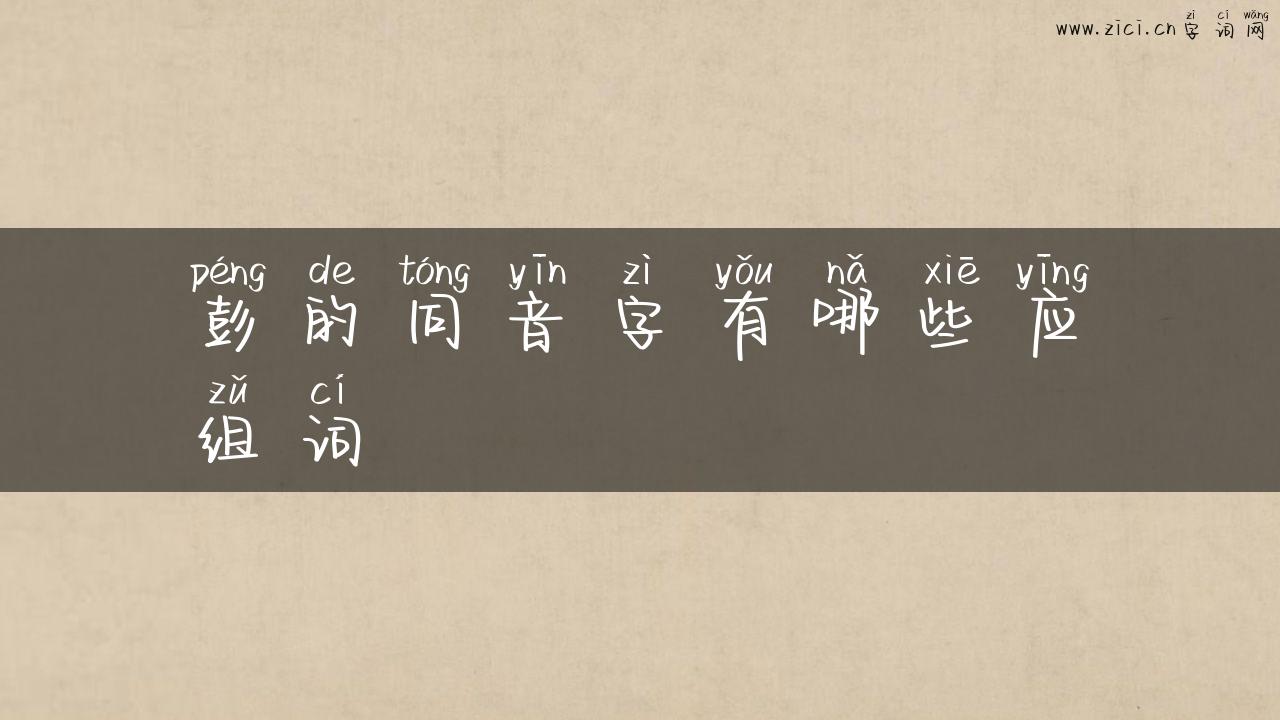 zì cí wǎng
www.zici.cn 字词网
péng de tóng yīn zì yǒu nǎ xiē yīng
彭的同音字有哪些应
zǔ cí
组词